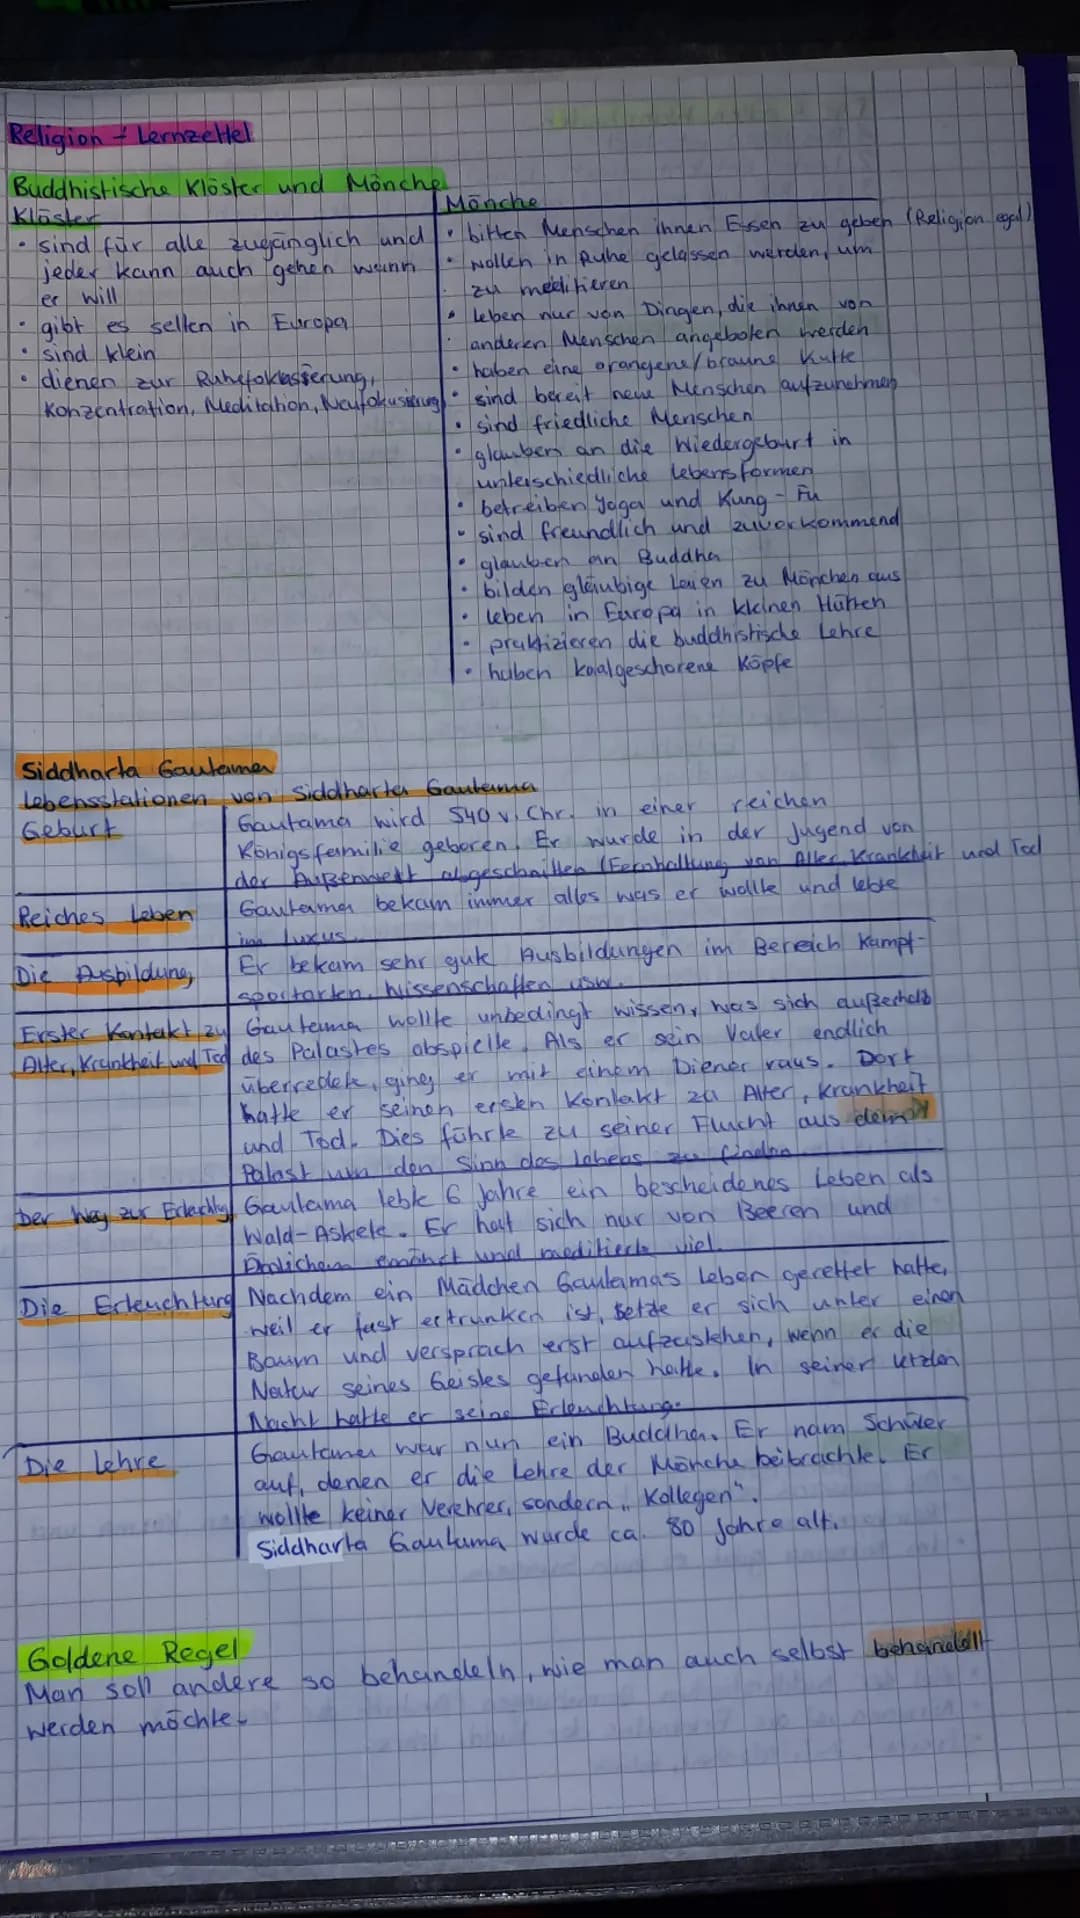 Religion - Lernzettel
Buddhistische Klöster und Mönche
Klöster
• sind für alle zugänglich und
jeder kann auch gehen wann
er will
• gibt es selten in Europa
• sind klein
• dienen zur
Konzentration, Meditation, Neufokussierung
Mönche
• bitten Menschen ihnen Essen zu geben (Religion egal)
• wollen in Ruhe gelassen werden, um
zu meditieren
• leben nur von Dingen, die ihnen von
anderen Menschen angeboten werden
• haben eine orangene/braune Kutte
• sind bereit neue Menschen aufzunehmen
• sind friedliche Menschen
• glauben an die Wiedergeburt in
unterschiedliche Lebensformen
• betreiben Yoga und Kung-Fu
• sind freundlich und zuvorkommend
• glauben an Buddha
• bilden gläubige Laien zu Mönchen aus
• leben in Europa in kleinen Hütten
• praktizieren die buddhistische Lehre
• haben kaalgeschorene Köpfe
Siddharta Gautama
Lebensstationen von Siddharta Gautama
Geburt
Gautama wird 540 v. Chr. in einer reichen
Königsfamilie geboren. Er wurde in der Jugend von
der Außenwelt abgeschnitten (Fernhaltung von Alter, Krankheit und Tod
Reiches Leben
Gautama bekam immer alles was er wollte und lebte
im Luxus.
Die Ausbildung
Er bekam sehr gute Ausbildungen im Bereich Kampf-
sportarten, Wissenschaften usw.
Erster Kontakt zu
Alter, Krankheit und Tod
Gautama wollte unbedingt wissen, was sich außerhalb
des Palastes abspielte. Als er sein Vater endlich
überredete, ging er mit einem Diener raus. Dort
hatte er seinen ersten Kontakt zu Alter, Krankheit
und Tod. Dies führte zu seiner Flucht aus dem
Palast um den Sinn des Lebens zu finden.
Der Weg zur
Gautama lebte 6 Jahre ein bescheidenes Leben als
Wald-Askete. Er hat sich nur von Beeren und
ernährt und meditierte viel.
Die Erleuchtung
Nachdem ein Mädchen Gautamas Leben gerettet hatte,
weil er fast ertrunken ist, setzte er sich unter einen
Baum und versprach erst aufzustehen, wenn er die
Natur seines Geistes gefunden hatte. In seiner letzten
Nacht hatte er seine Erleuchtung.
Die Lehre
Gautama war nun ein Buddha. Er nam Schüler
auf, denen er die Lehre der Mönche beibrachte. Er
wollte keiner Verehrer, sondern „Kollegen".
Siddharta Gautama wurde ca. 80 Jahre alt.
Goldene Regel
Man soll andere so behandeln, wie man auch selbst
werden möchte.